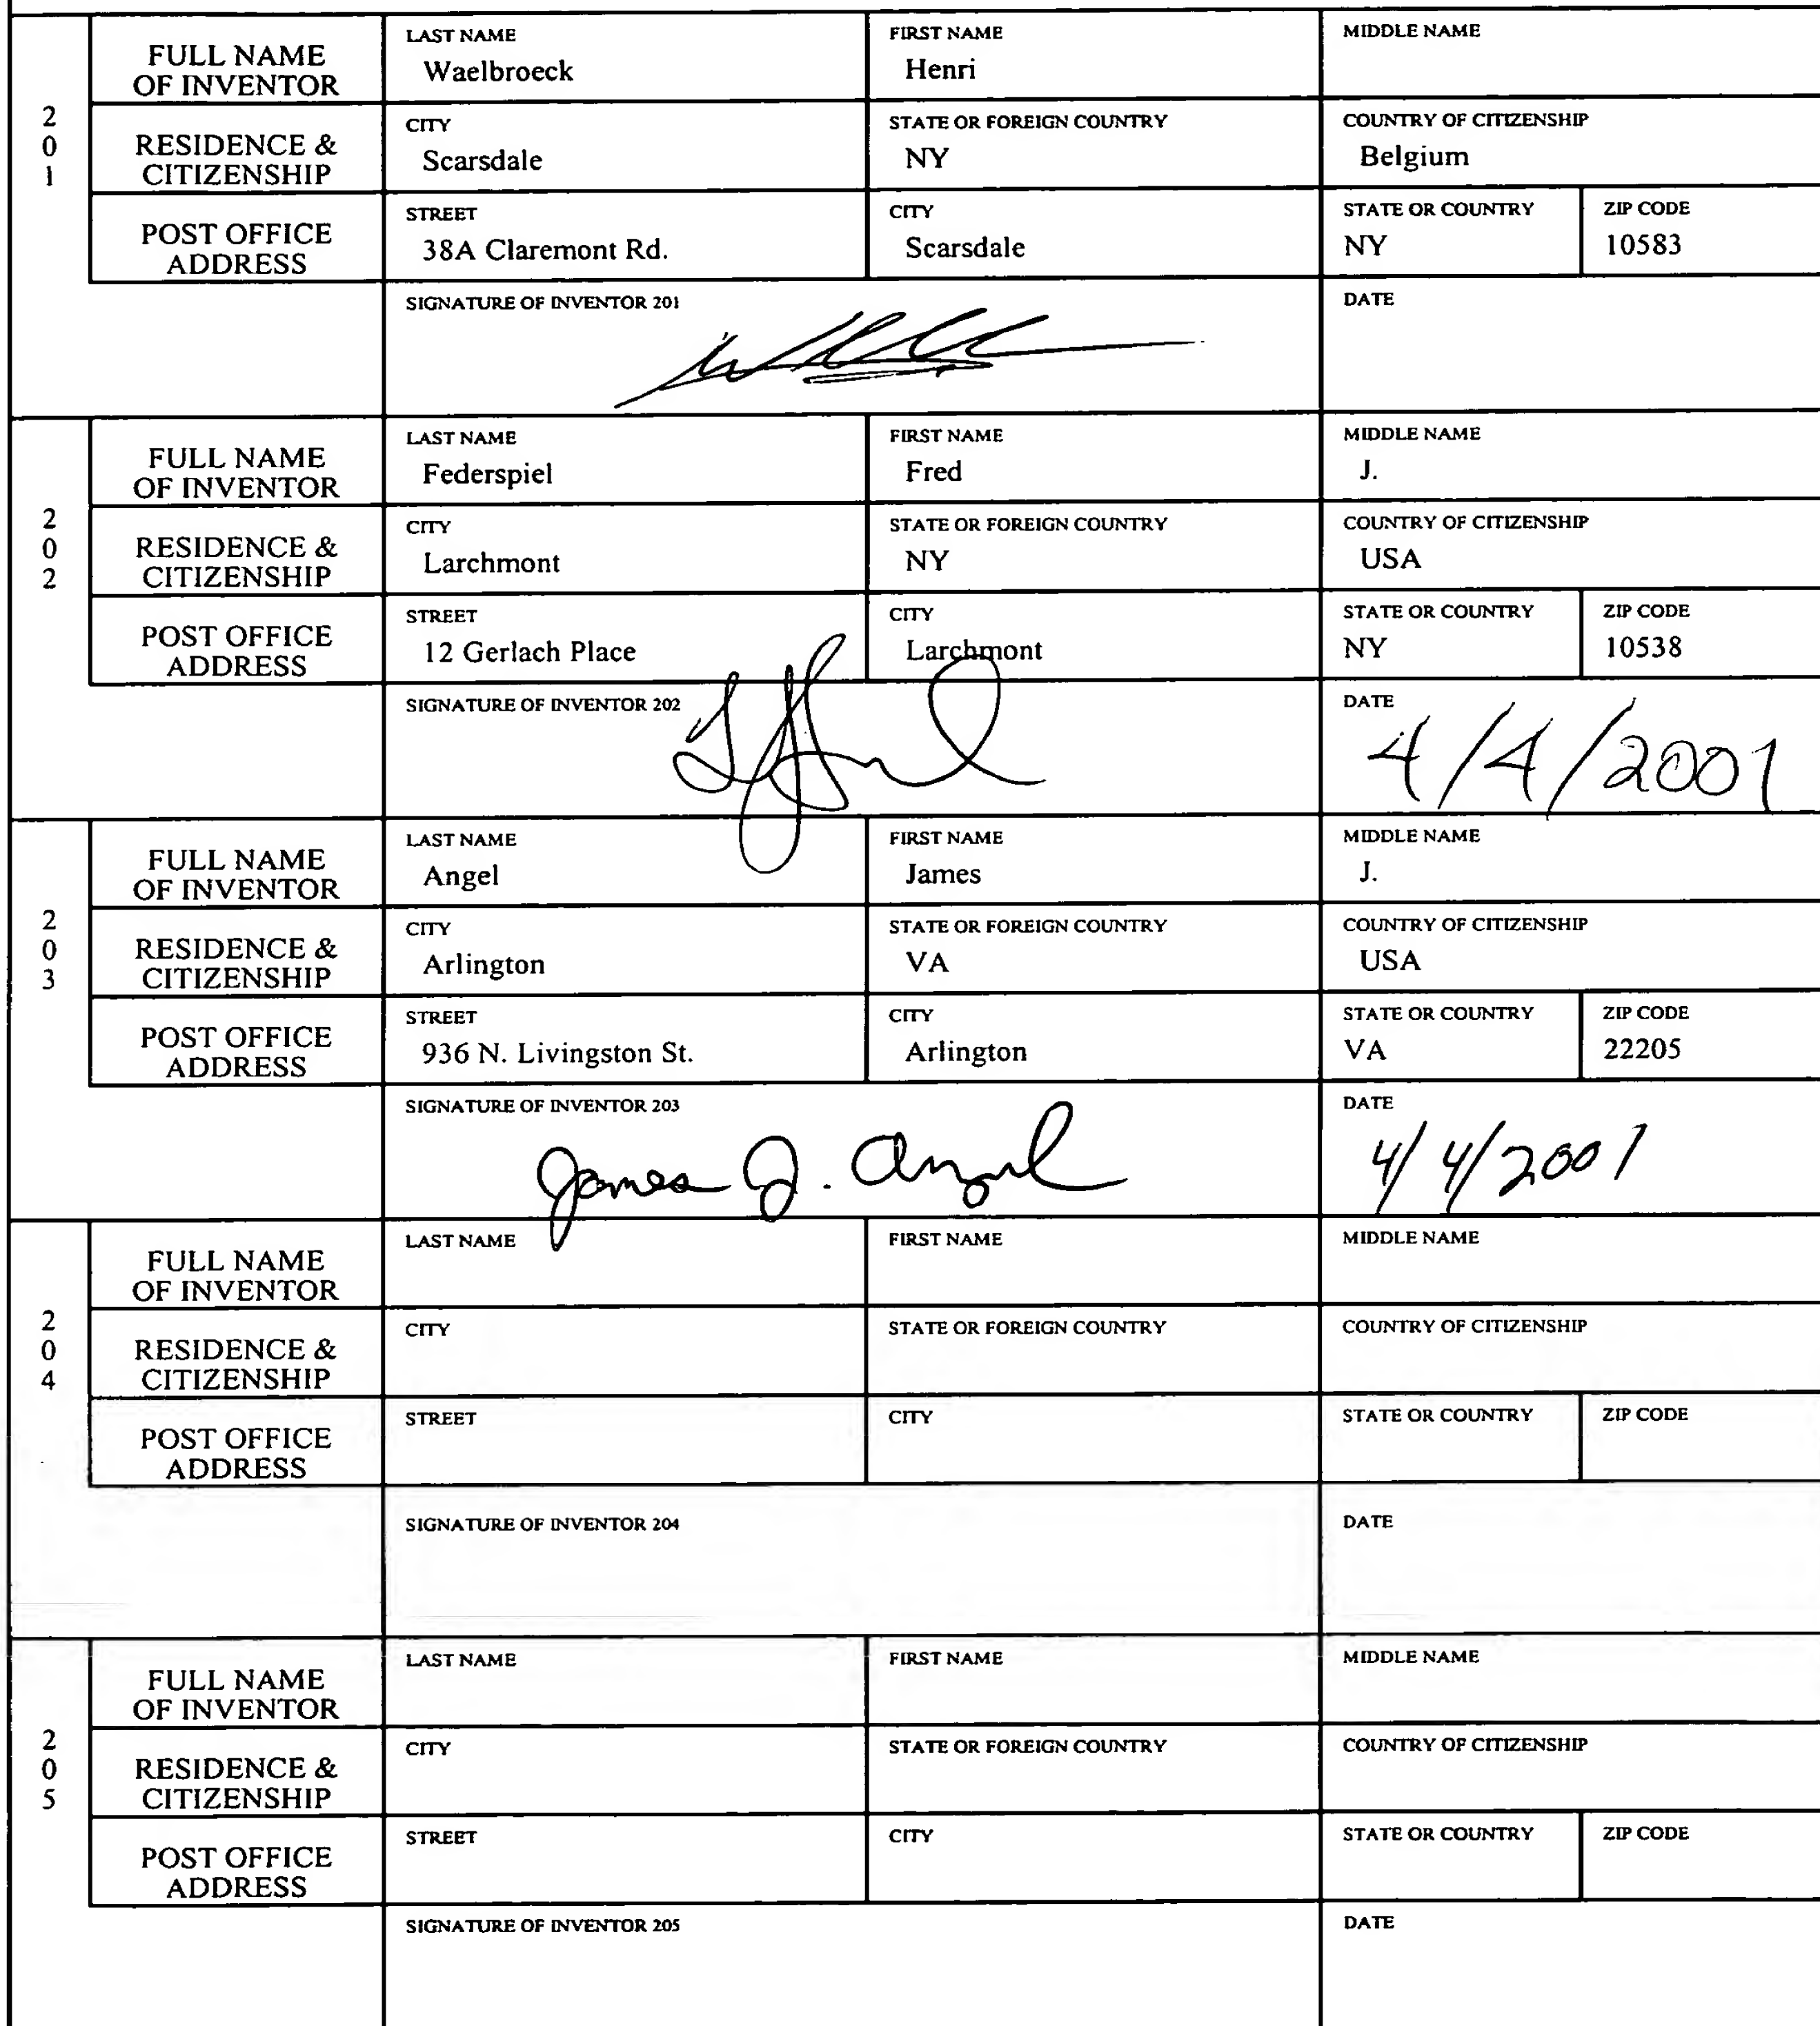 2 0 1
FULL NAME OF INVENTOR
LAST NAME
Waelbroeck
FIRST NAME
Henri
MIDDLE NAME
RESIDENCE & CITIZENSHIP
CITY
Scarsdale
STATE OR FOREIGN COUNTRY
NY
COUNTRY OF CITIZENSHIP
Belgium
POST OFFICE ADDRESS
STREET
38A Claremont Rd.
CITY
Scarsdale
STATE OR COUNTRY
NY
ZIP CODE
10583
SIGNATURE OF INVENTOR 201
DATE
2 0 2
FULL NAME OF INVENTOR
LAST NAME
Federspiel
FIRST NAME
Fred
MIDDLE NAME
J.
RESIDENCE & CITIZENSHIP
CITY
Larchmont
STATE OR FOREIGN COUNTRY
NY
COUNTRY OF CITIZENSHIP
USA
POST OFFICE ADDRESS
STREET
12 Gerlach Place
CITY
Larchmont
STATE OR COUNTRY
NY
ZIP CODE
10538
SIGNATURE OF INVENTOR 202
DATE
4/4/2001
2 0 3
FULL NAME OF INVENTOR
LAST NAME
Angel
FIRST NAME
James
MIDDLE NAME
J.
RESIDENCE & CITIZENSHIP
CITY
Arlington
STATE OR FOREIGN COUNTRY
VA
COUNTRY OF CITIZENSHIP
USA
POST OFFICE ADDRESS
STREET
936 N. Livingston St.
CITY
Arlington
STATE OR COUNTRY
VA
ZIP CODE
22205
SIGNATURE OF INVENTOR 203
James J. Angel
DATE
4/4/2001
2 0 4
FULL NAME OF INVENTOR
LAST NAME
FIRST NAME
MIDDLE NAME
RESIDENCE & CITIZENSHIP
CITY
STATE OR FOREIGN COUNTRY
COUNTRY OF CITIZENSHIP
POST OFFICE ADDRESS
STREET
CITY
STATE OR COUNTRY
ZIP CODE
SIGNATURE OF INVENTOR 204
DATE
2 0 5
FULL NAME OF INVENTOR
LAST NAME
FIRST NAME
MIDDLE NAME
RESIDENCE & CITIZENSHIP
CITY
STATE OR FOREIGN COUNTRY
COUNTRY OF CITIZENSHIP
POST OFFICE ADDRESS
STREET
CITY
STATE OR COUNTRY
ZIP CODE
SIGNATURE OF INVENTOR 205
DATE